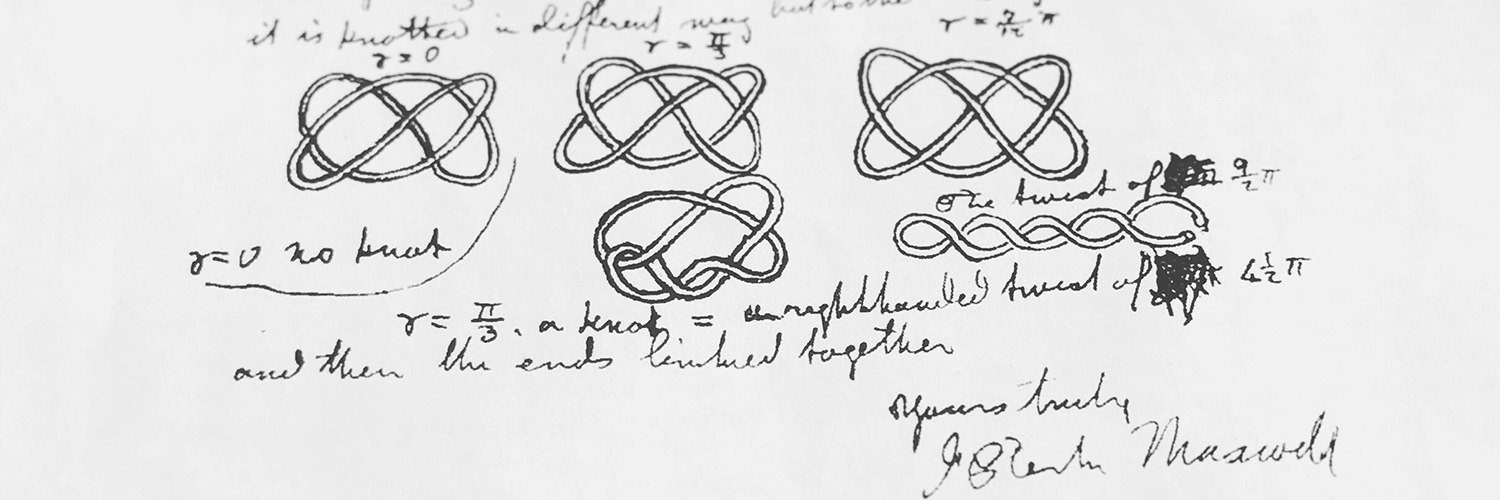 it is knotted in different way but to the
γ = 0
γ = π/3
γ = 7/12 π
The twist of 9/2 π
γ = 0 no knot
γ = π/3. a knot = righthanded twist of 4 1/2 π
and then the ends linked together
Yours truly
J Clerk Maxwell